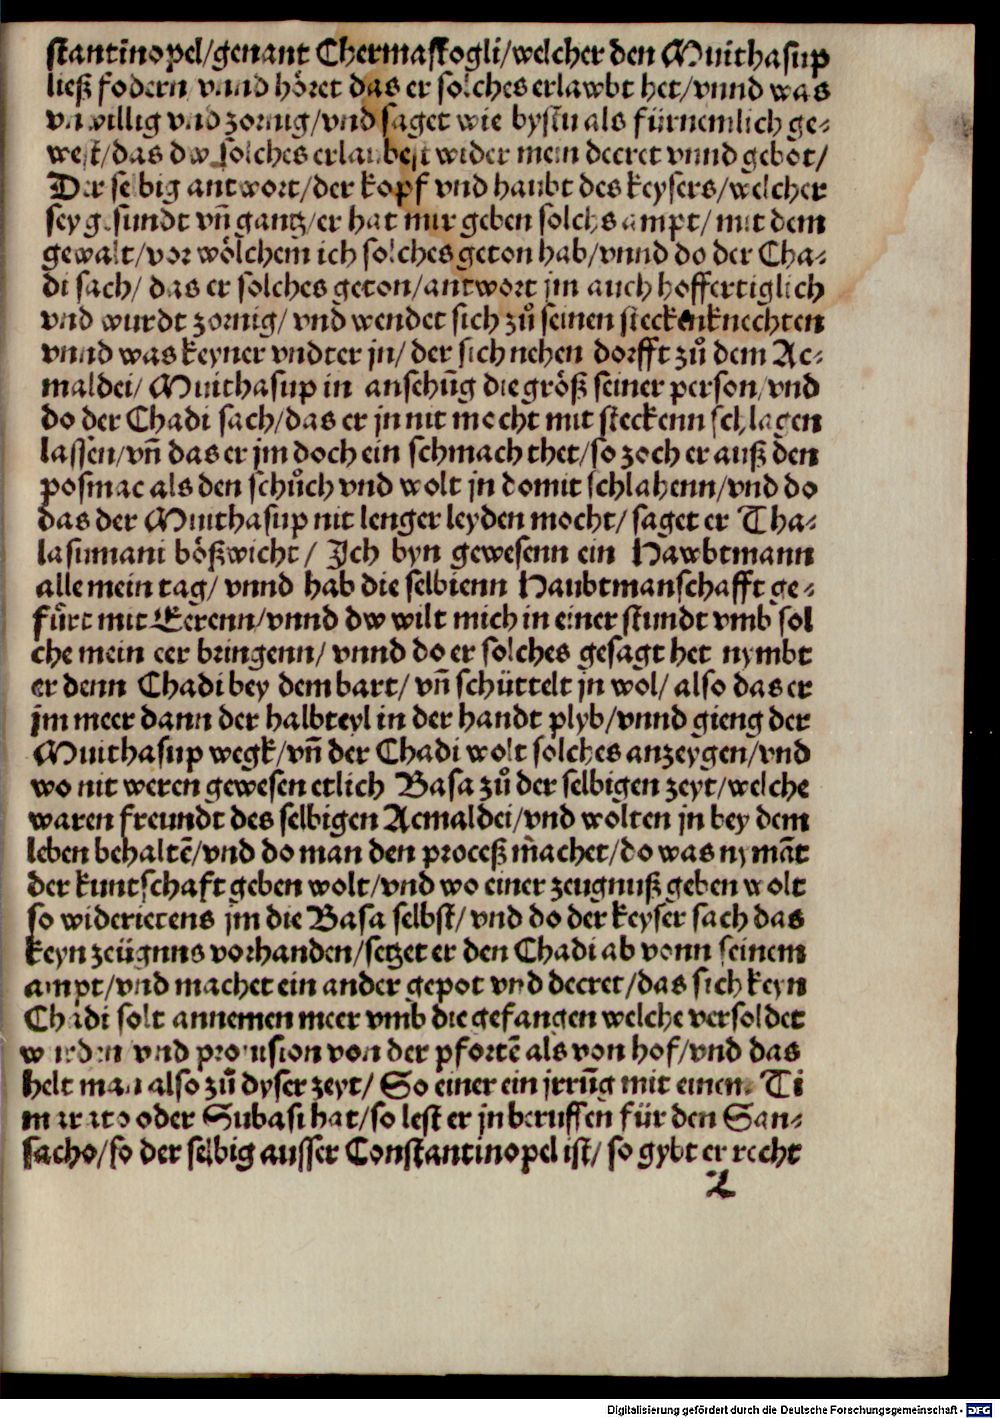 stantīnopel/genant Chermaſſogli/welcher den Muithasup
ließ fodern vnnd höret das er solches erlawbt het/vnnd was
vnwillig vnd zornig/vnd saget wie bystu als fürnemlich ge-
west/das dw solches erlaubest wider mein decret vnnd gebot/
Der selbig antwort/der kopf vnd haubt des keysers/welcher
sey gesundt vn̄ gantz/er hat mir geben solchs ampt/mit dem
gewalt/vor wölchem ich solches geton hab/vnnd do der Cha-
di sach/ das er solches geton/antwort jm auch hoffertiglich
vnd wurdt zornig/ vnd wendet sich zů seinen steckenknechten
vnnd was keyner vndter jn/ der sich nehen dorfft zů dem Ac-
maldei/ Muithasup in ansehūg die größ seiner person/vnd
do der Chadi sach/das er jn nit mocht mit steckenn schlagen
lassen/vn̄ das er jm doch ein schmach thet/so zoch er auß den
posmac als den schůch vnd wolt jn domit schlahenn/vnd do
das der Muithasup nit lenger leyden mocht/ saget er Tha-
lasumani bößwicht/ Ich byn gewesenn ein Hawbtmann
alle mein tag/ vnnd hab die selbienn Haubtmanschafft ge-
fůrt mit Eerenn/vnnd dw wilt mich in einer stundt vmb sol
che mein eer bringenn/ vnnd do er solches gesagt het nymbt
er denn Chadi bey dem bart/ vn̄ schüttelt jn wol/ also das er
jm meer dann der halbteyl in der handt plyb/vnnd gieng der
Muithasup wegk/vn̄ der Chadi wolt solches anzeygen/vnd
wo nit weren gewesen etlich Basa zů der selbigen zeyt/welche
waren freundt des selbigen Acmaldei/vnd wolten jn bey dem
leben behaltē/vnd do man den proceß machet/do was nymāt
der kuntschaft geben wolt/vnd wo einer zeugnuß geben wolt
so widerietens jm die Basa selbst/vnd do der keyser sach das
keyn zeügnns vorhanden/setzet er den Chadi ab vonn seinem
ampt/vnd machet ein ander gepot vnd decret/das sich keyn
Chadi solt annemen meer vmb die gefangen welche versoldet
wurden vnd prouision von der pfortē als von hof/vnd das
helt man also zů dyser zeyt/ So einer ein jrrūg mit einem Ti
marato oder Subasi hat/so lest er jn beruffen für den San-
sacho/so der selbig ausser Constantinopel ist/ so gybt er recht
Digitalisierung gefördert durch die Deutsche Forschungsgemeinschaft - DFG